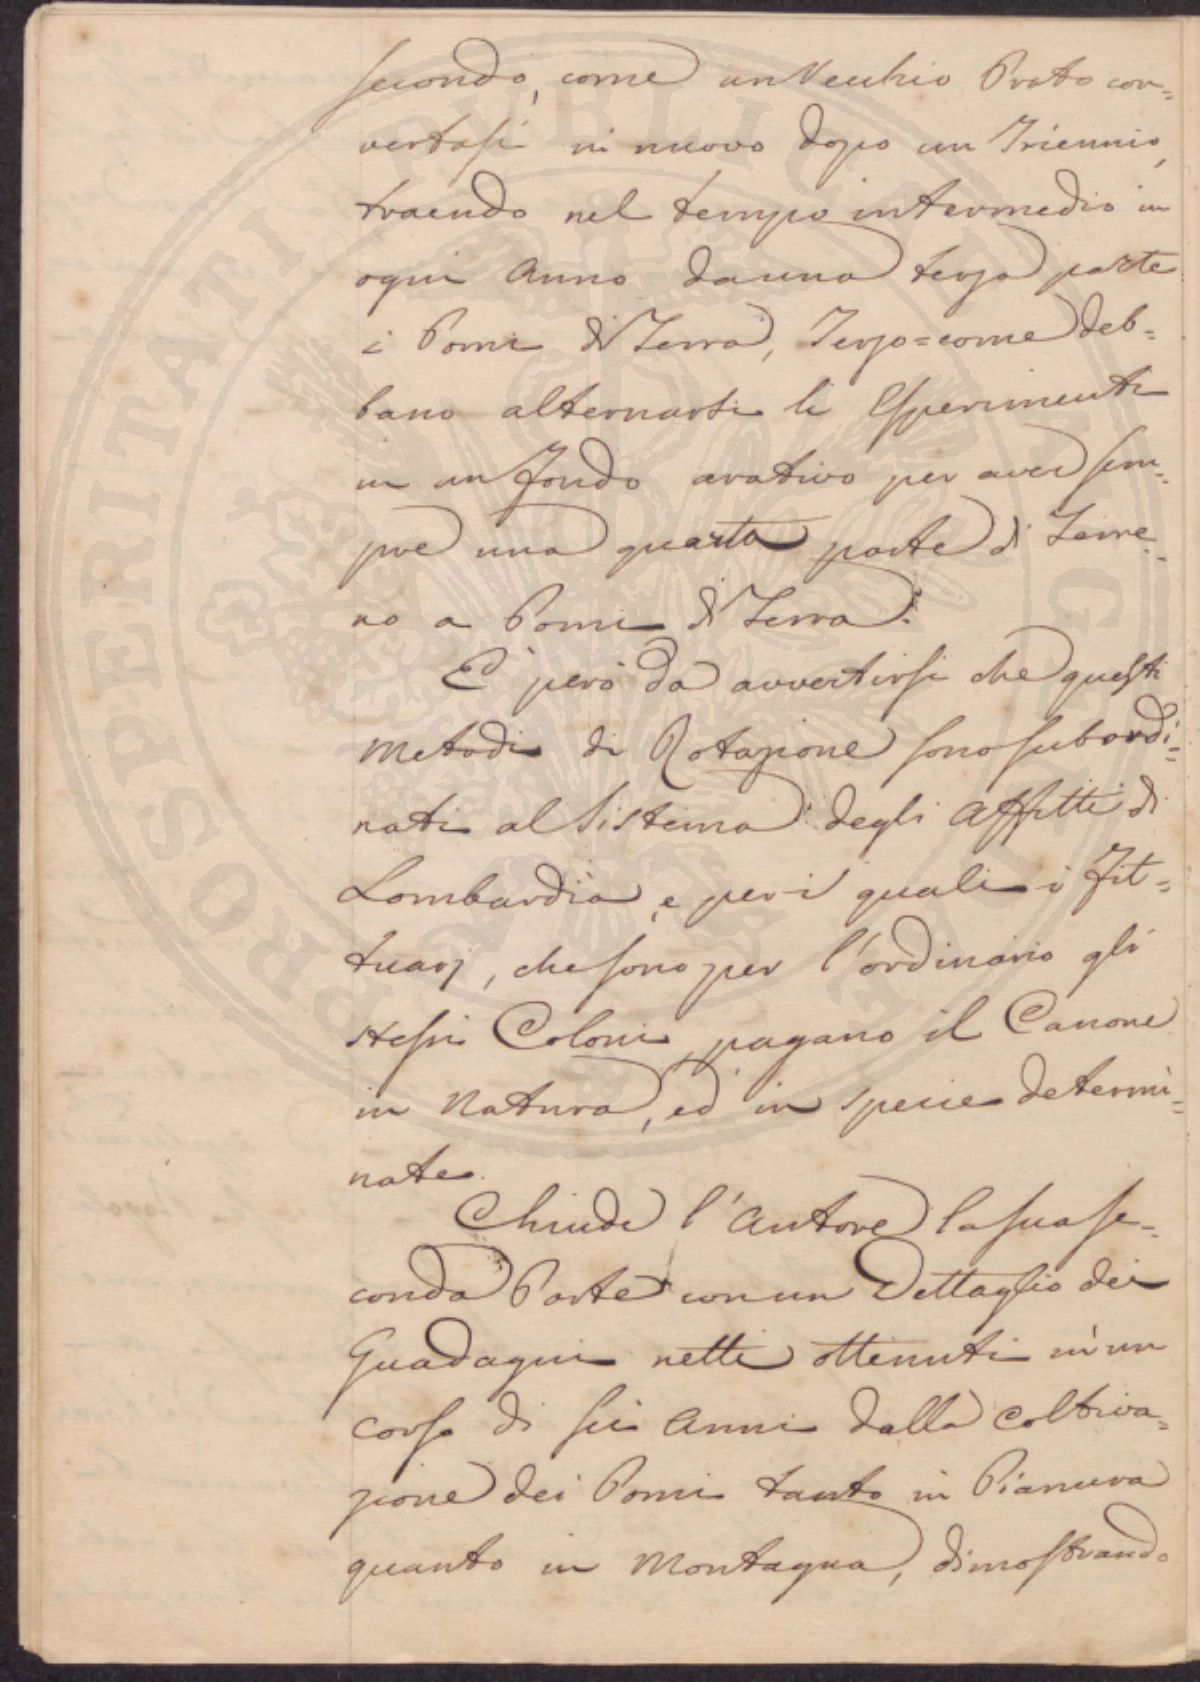 secondo, come un Vecchio Prato con=
vertasi in nuovo dopo un Triennio,
traendo nel tempo intermedio in
ogni Anno da una terza parte
i Pomi di Terra, Terzo=come deb=
bano alternarsi li Esperimenti
in un fondo arativo per aver sem=
pre una quarta parte di Terre=
no a Pomi di Terra.
E' però da avvertirsi che questi
Metodi di Rotazione sono subordi=
nati al Sistema degli Affitti di
Lombardia, e per i quali i Fit=
tuarj, che sono per l'ordinario gli
stessi Coloni, pagano il Canone
in Natura, ed in specie determi=
nate.
Chiude l'Autore la sua se=
conda Parte con un Dettaglio dei
Guadagni netti ottenuti in un
corso di sei Anni dalla Coltiva=
zione dei Pomi tanto in Pianura
quanto in Montagna, dimostrando
PROSPERITATI PUBLICAE AUGENDAE